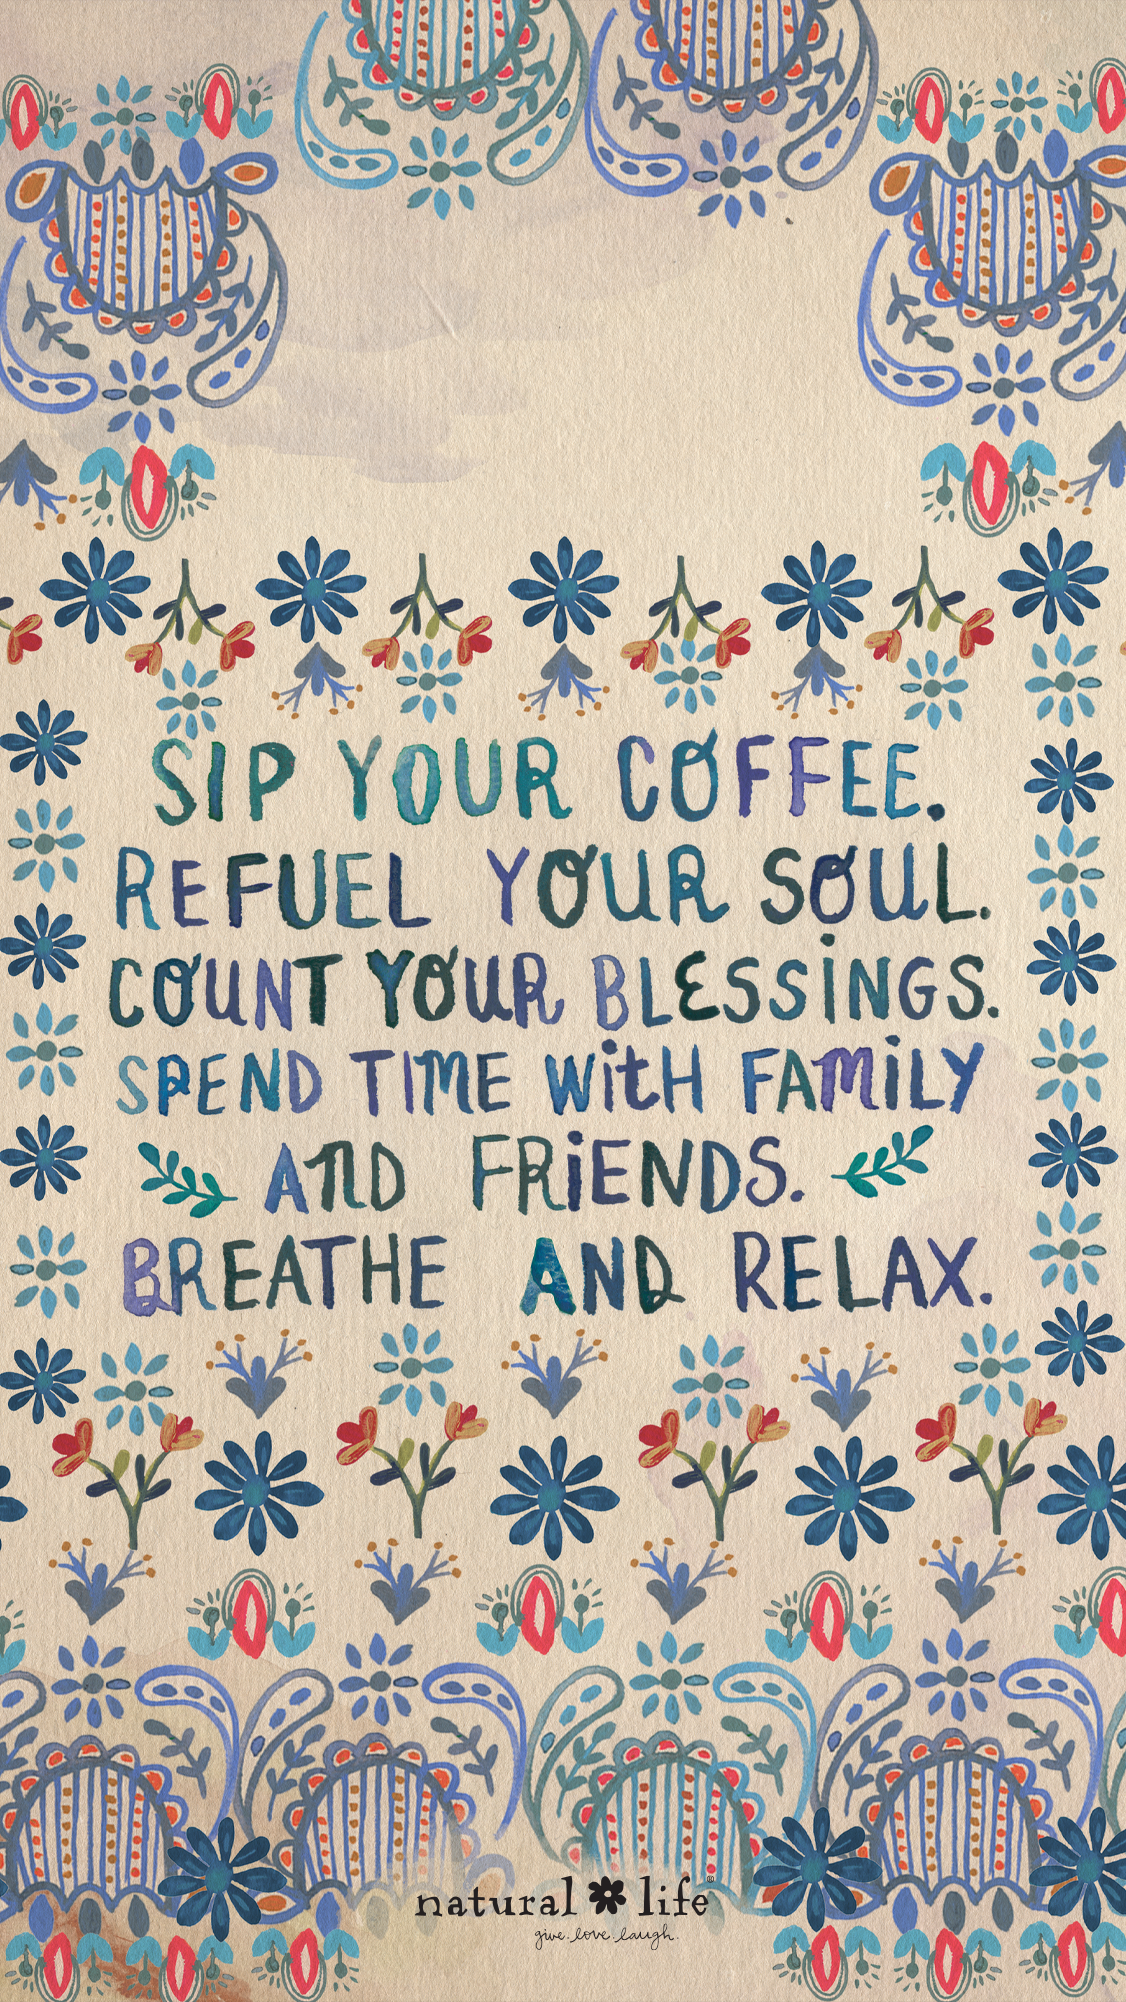 SIP YOUR COFFEE.
REFUEL YOUR SOUL.
COUNT YOUR BLESSiNGS.
SPEND TIME WitH FAMiLY
AND FRiENDS.
BREATHE AND RELAX.
natural life®
give. love. laugh.